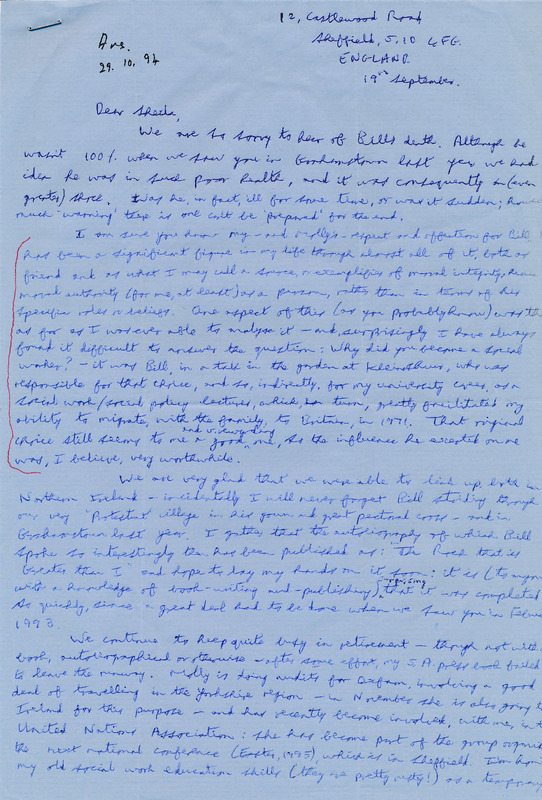 12, Castlewood Road
Sheffield, S10 4FG.
ENGLAND
19th September.
Ans.
29. 10. 94
Dear Sheila,
We are so sorry to hear of Bill's death. Although he
wasn't 100% when we saw you in Grahamstown last year we had
idea he was in such poor health, and it was consequently an (even
greater) shock. Was he, in fact, ill for some time, or was it sudden; how
much 'warning' there is one can't be 'prepared' for the end.
I am sure you know my - and Molly's - respect and affection for Bill.
has been a significant figure in my life through almost all of it, both as
friend and as what I may call a source, or exemplifier of moral integrity,
moral authority (for me, at least) as a person, rather than in terms of his
specific roles or beliefs. One aspect of this (as you probably know) was th
as far as I was ever able to analyse it - and, surprisingly I have always
found it difficult to answer the question: Why did you become a social
worker? - it was Bill, in a talk in the garden at Kleinskuur, who was
responsible for that choice, and so, indirectly, for my university career, as a
social work/social policy lecturer, which, in turn, greatly facilitated my
ability to migrate, with the family, to Britain, in 1971. That original
choice still seems to me a good and v. rewarding one, so the influence he exerted on me
was, I believe, very worthwhile.
We are very glad that we were able to link up, both in
Northern Ireland - incidentally I will never forget Bill striding through
our very 'Protestant' village in his gown and great pectoral cross - and in
Grahamstown last year. I gather that the autobiography of which Bill
spoke so interestingly then has been published as: The Rock that is
Greater than I and hope to lay my hands on it soon: it is (to anyone
with a knowledge of book-writing and -publishing) surprising that it was completed
so quickly, since a great deal had to be done when we saw you in Febru
1993.
We continue to keep quite busy in retirement - though not with
book, autobiographical or otherwise - after some effort, my S.A. press book failed
to leave the runway. Molly is doing audits for Oxfam, involving a good
deal of travelling in the Yorkshire region - in November she is also going to
Ireland for this purpose - and has recently become involved, with me, in t
United Nations Association: she has become part of the group organis
the next national conference (Easter, 1995), which is in Sheffield. I'm
my old social work education skills (they're pretty rusty!) as a temporary